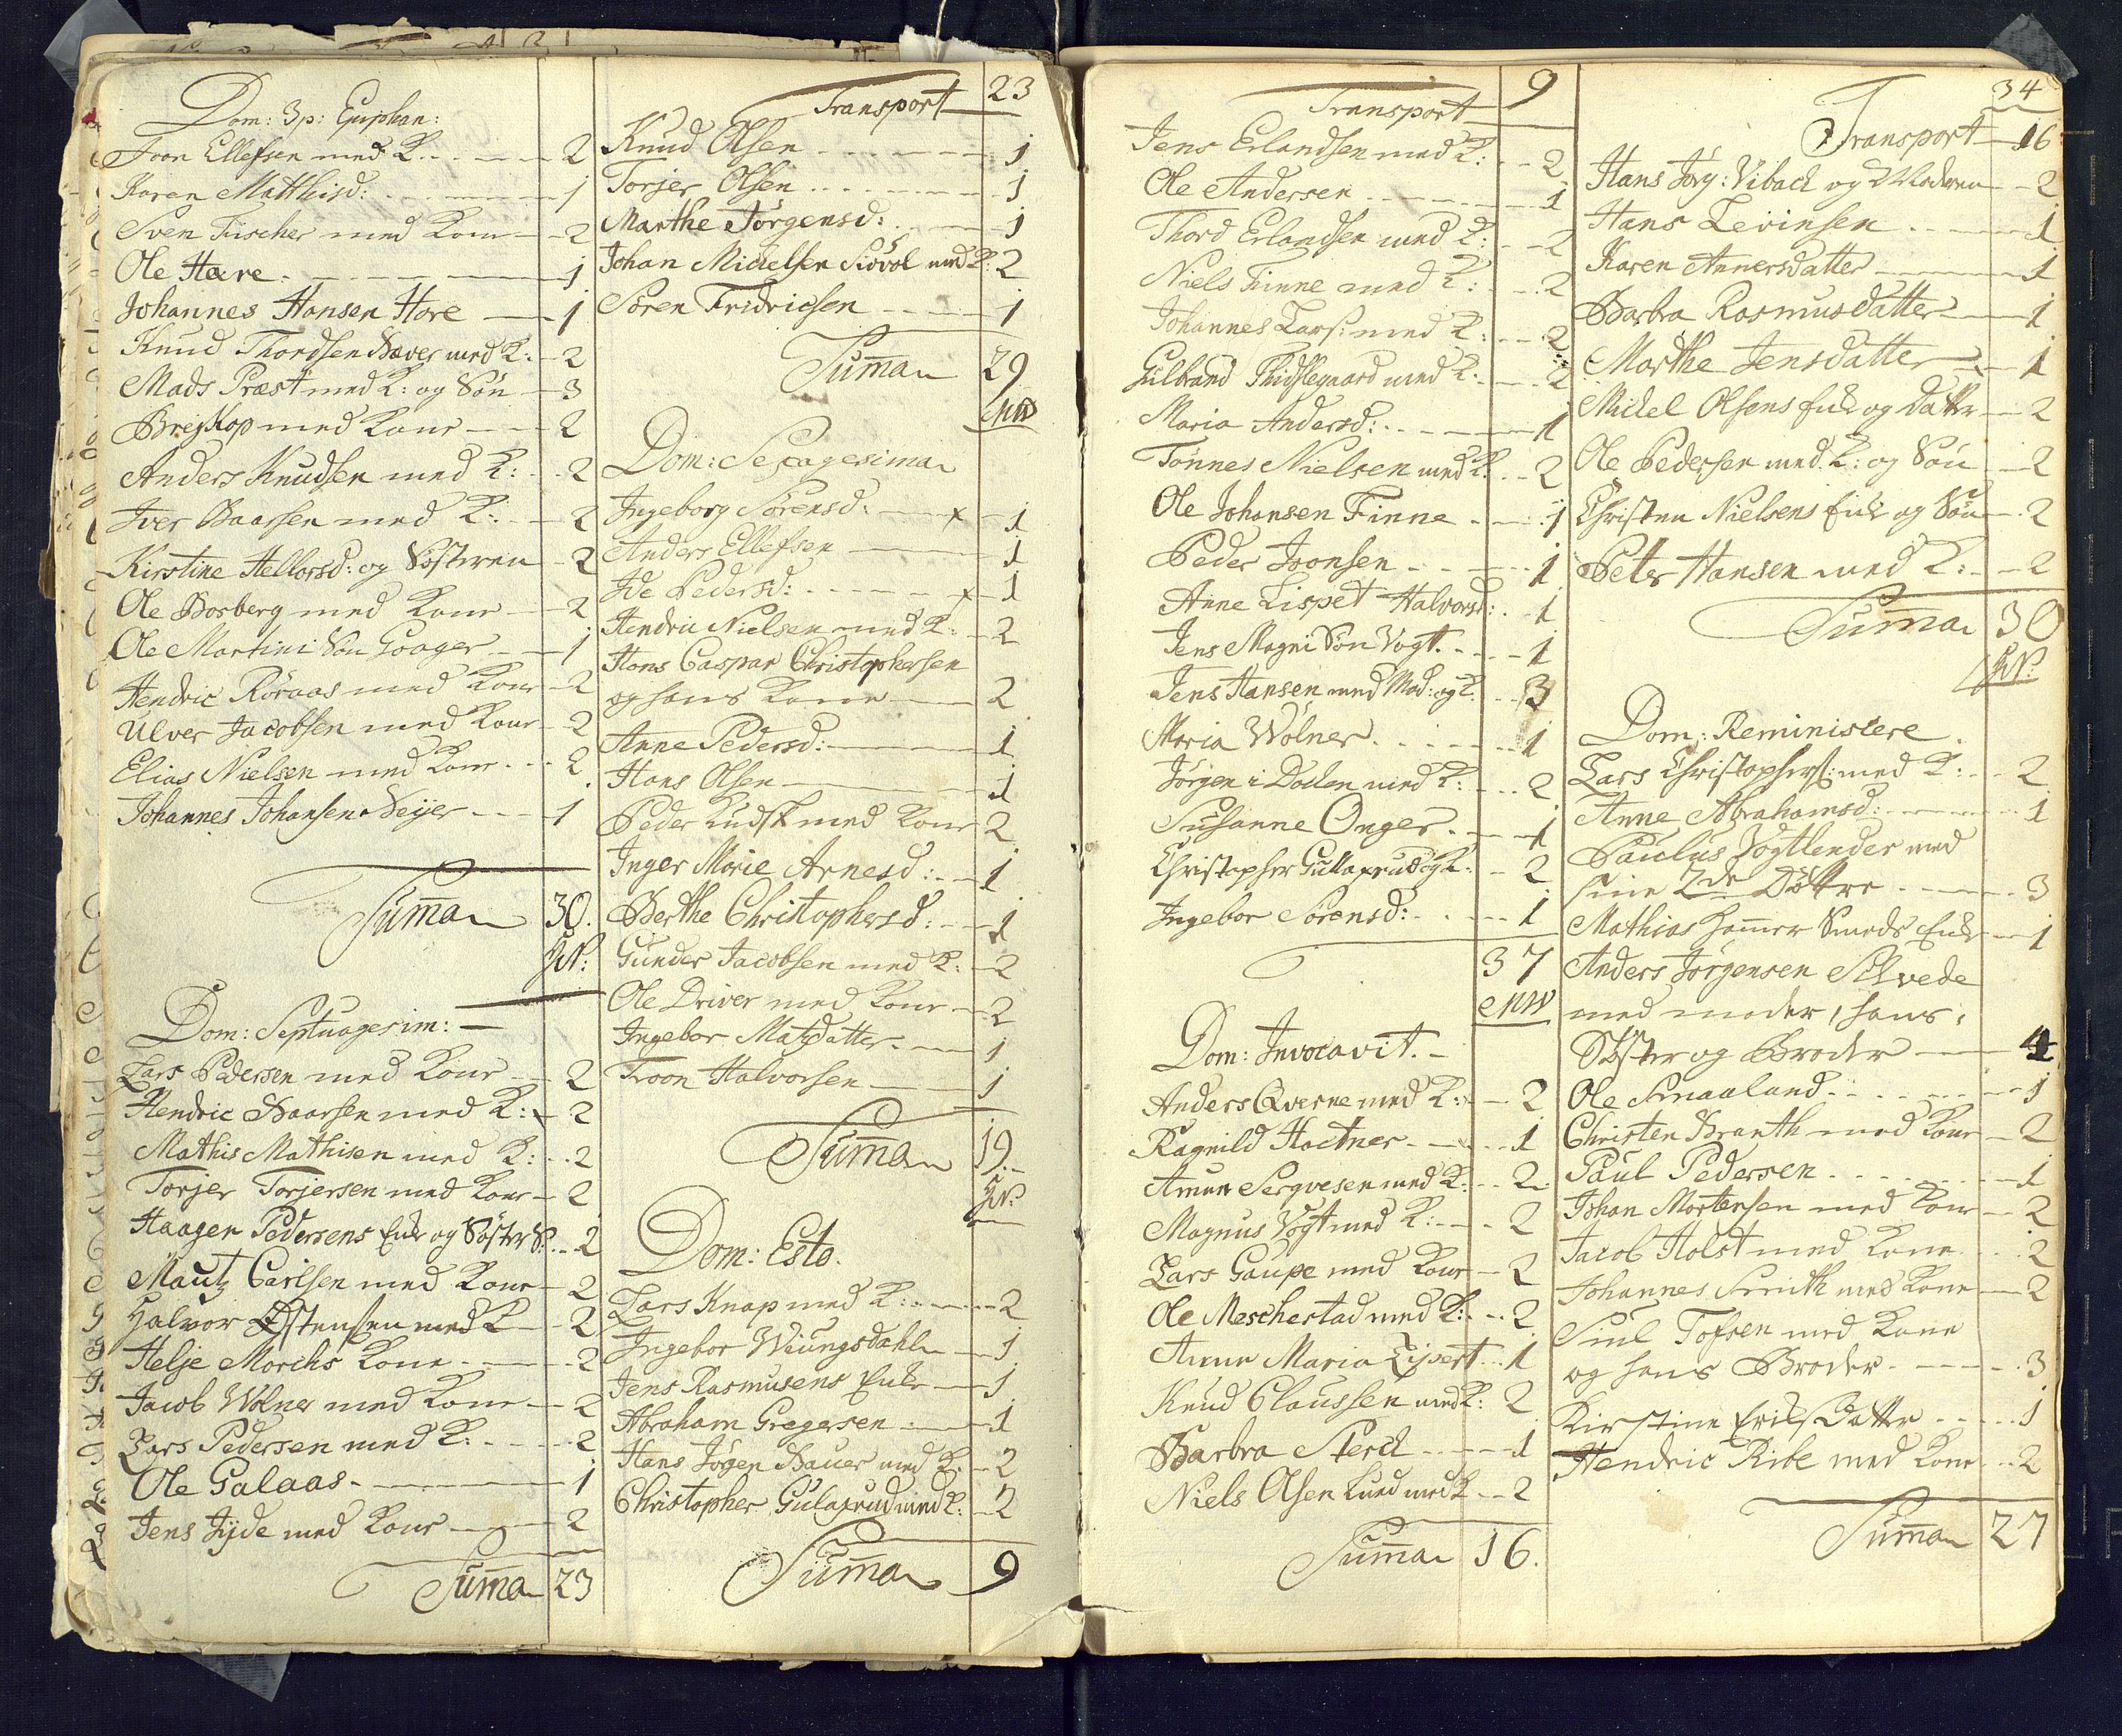 Dom: 3 p: Epiphan:
Joon Ellefsen med K. - - - - 2
Karen Matthisd: - - - - 1
Sven Fischer med Kone - 2
Ole Hare - - - - 1
Johannes Hansen Hore - 1
Knud Thordsen Sæver med K: - 2
Mads Præst med K: og Søn - 3
Breskop med Kone - - - 2
Anders Knudsen med K: - - 2
Iver Baarsen med K: - - 2
Kirstine Hellorsd: og Søsteren - 2
Ole Bosberg med Kone - 2
Ole Martini Søn Goager - - 1
Hendric Röraas med Kone - 2
Ulver Jacobsen med Kone - 2
Elias Nielsen med Kone - - - 2
Johannes Johansen Veijer - - - 1
Suma 30.
Dom: Septuagesim: -
Lars Pedersen med Kone - 2
Hendric Baarsen med K: - 2
Mathis Mathisen med K: - - 2
Torjer Torjersen med Kone - 2
Haagen Pedersens Enke og Søster S: - - 2
Mautz Carlsen med Kone - 2
Halvor Østensen med K - 2
Helje Morchs Kone - - - 2
Jacob Wolner med Kone - 2
Lars Pedersen med K: - - - 2
Ole Galaas - - - - 1
Jens Jyde med Kone - - 2
Suma 23
Transport 23
Knud Olsen - - - - 1
Torjer Olsen - - - - 1
Marthe Jörgensd: - - 1
Johan Mickelsen Siövol med K: 2
Sören Fridricsen - - - 1
Suma 29
Dom: Sexagesima
Ingeborg Sörensd: - x - 1
Anders Ellefsen - 1
Ide Pedersd: - - - x - 1
Hendric Nielsen med K: - 2
Hans Caspar Christophersen
og hans Kone - 2
Anne Pedersd: - 1
Hans Olsen - 1
Peder Kudsk med Kone 2
Inger Marie Arnesd: - - 1
Berthe Christophersd: - - 1
Gunder Jacobsen med K: - 2
Ole Driver med Kone - 2
Ingebor Matzdatter - - 1
Troon Halvorsen - 1
Suma 19.
Dom: Esto.
Lars Knap med K: - - - 2
Ingebor Wiungsdahl - 1
Jens Rasmusens Enke - 1
Abraham Gregersen - - 1
Hans Jögen Bauer med K. - 2
Christopher Gulaxrud med K: - 2
Suma 9
Transport 9
Jens Erlandsen med K: - - 2
Ole Andersen - - - 1
Thord Erlandsen med K: - - 2
Niels Finne med K: - - 2
Johannes Lars: med K: - - 2
Gulbrand Thidslegaard med K: - - 2
Maria Andersd: - - - 1
Tönnes Nielsen med K. - - 2
Ole Johansen Finne - - 1
Peder Joonsen - - - 1
Anne Lispet Halvorsd: - 1
Jens Magni Søn Vogt. - - 1
Jens Hansen med Mod: og K. - 3
Maria Wolner - - - 1
Jörgen i Dollen med K: - - 2
Susanne Onger - - - 1
Christopher Gullaxrud og K: - 2
Ingebor Sörensd: - - - 1
37
Dom: Invocavit. -
Anders Qverne med K: - - 2
Ragnild Hoctner - - - 1
Amun Sergvesen med K: - - 2
Magnus Vogt med K: - - 2
Lars Gaupe med Kone - 2
Ole Meschestad med K: - - 2
Anne Maria Lipert - - 1
Knud Claussen med K: 2
Barbra Sterck - - - 1
Niels Olsen Lund med K - - 2
Suma 16.
34
Transport 16
Hans Jörg: Viback og Moderen - 2
Hans Levinsen - - - 1
Karen Annersdatter - 1
Barbra Rasmusdatter - 1
Marthe Jensdatter - 1
Mickel Olsens Enke og Datter - 2
Ole Pedersen med K: og Søn - 2
Christen Nielsens Enke og Søn - 2
Peter Hansen med K: - 2
Suma 30
Dom: Reministere.
Lars Christophers: med K: - - 2
Anne Abrahamsd: - - - 1
Paulus Vogtlender med
sine 2de Døttre - - - 3
Mathias Hamer Smeds Enke - 1
Anders Jörgensen Schvede
med moder, hans,
Søster og Broder - 4
Ole Smaaland - - - 1
Christen Branth med Kone - 2
Paul Pedersen - - - 1
Johan Mortensen med Kone - 2
Jacob Holst med Kone - - 2
Johannes Smith med Kone - 2
Siul Tofsen med Kone
og hans Broder - - - 3
Kirstine Eriks Datter - - - 1
Hendric Ribe med Kone - - 2
Suma 27